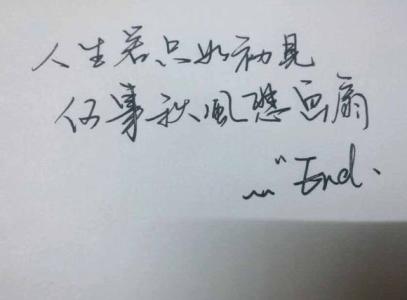 人生若只如初見
何事秋風悲画扇
……"End.